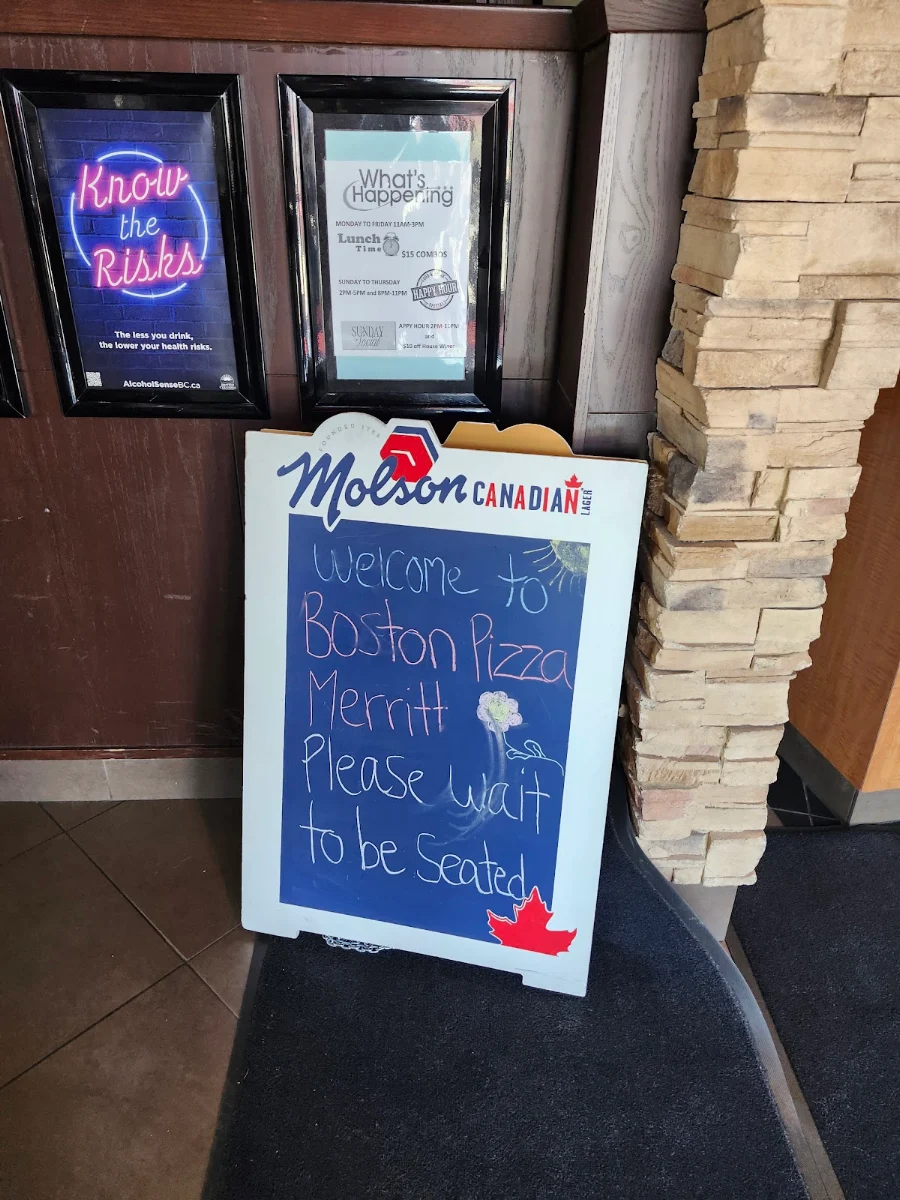 Know
the
Risks
The less you drink,
the lower your health risks.
AlcoholSenseBC.ca
What's
Happening
MONDAY TO FRIDAY 11AM-3PM
Lunch
Time
$15 COMBOS
SUNDAY TO THURSDAY
2PM-5PM and 8PM-11PM
HAPPY HOUR
SUNDAY
Social
APPY HOUR 2PM-11PM
and
$10 off House Wines
FOUNDED 1786
Molson CANADIAN LAGER
Welcome to
Boston Pizza
Merritt
Please wait
to be Seated